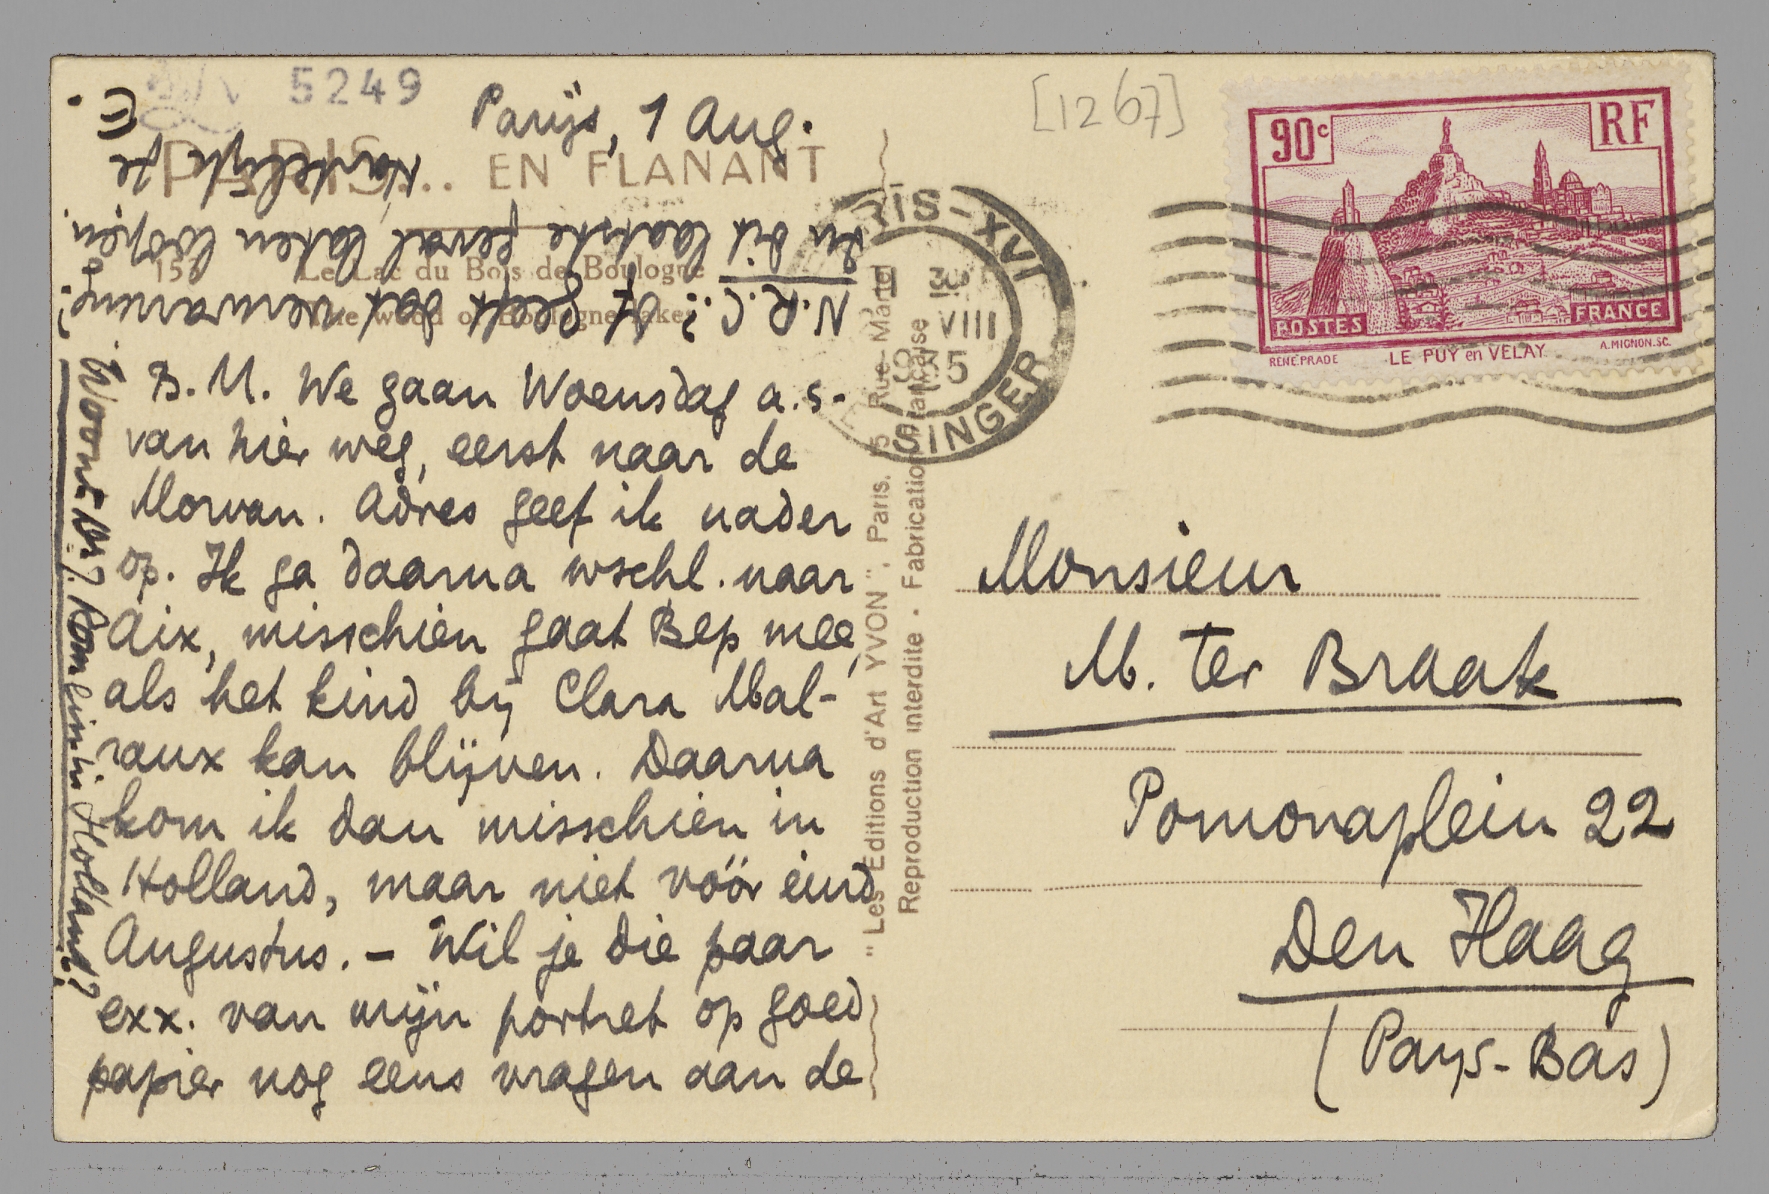 5249
Parijs, 1 Aug.
PARIS... EN FLANANT
15
Le Lac du Bois de Boulogne
The wood of Boulogne lake
B.M. We gaan Woensdag a.s.
van hier weg, eerst naar de
Morvan. Adres geef ik nader
op. Ik ga daarna wschl. naar
Aix, misschien gaat Bep mee,
als het kind bij Clara Mal-
raux kan blijven. Daarna
kom ik dan misschien in
Holland, maar niet vóór eind
Augustus. – Wil je die paar
exx. van mijn portret op goed
papier nog eens vragen aan de
N.R.C.? Of geeft dat verwarring?
In dit laatste geval laten loopen.
Hartelijk je
E.
Woont Dr. J. Romein in Holland?
"Les Editions d'Art YVON", Paris, 15 Rue Martel
Reproduction interdite - Fabrication Française
[1267]
90c
RF
POSTES
FRANCE
RENÉ PRADE
LE PUY en VELAY
A. MIGNON. SC.
PARIS-XVI
VIII
35
SINGER
Monsieur
M. ter Braak
Pomonaplein 22
Den Haag
(Pays-Bas)